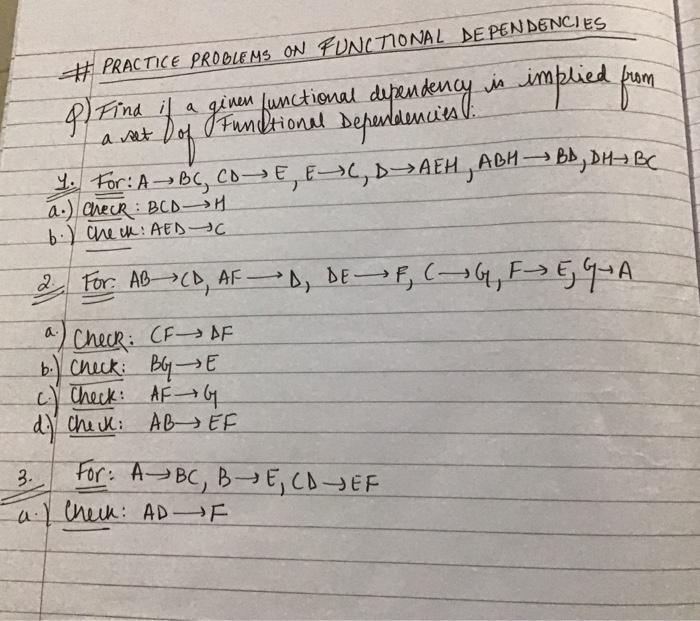 # PRACTICE PROBLEMS ON FUNCTIONAL DEPENDENCIES
Q) Find if a given functional dependency is implied from
a set of Functional Dependencies:
1. For: A→BC, CD→E, E→C, D→AEH, ABH→BD, DH→BC
a.) Check: BCD→H
b.) Check: AED→C
2. For: AB→CD, AF→D, DE→F, C→G, F→E, G→A
a.) Check: CF→DF
b.) Check: BG→E
c.) Check: AF→G
d.) Check: AB→EF
3. For: A→BC, B→E, CD→EF
a.) Check: AD→F